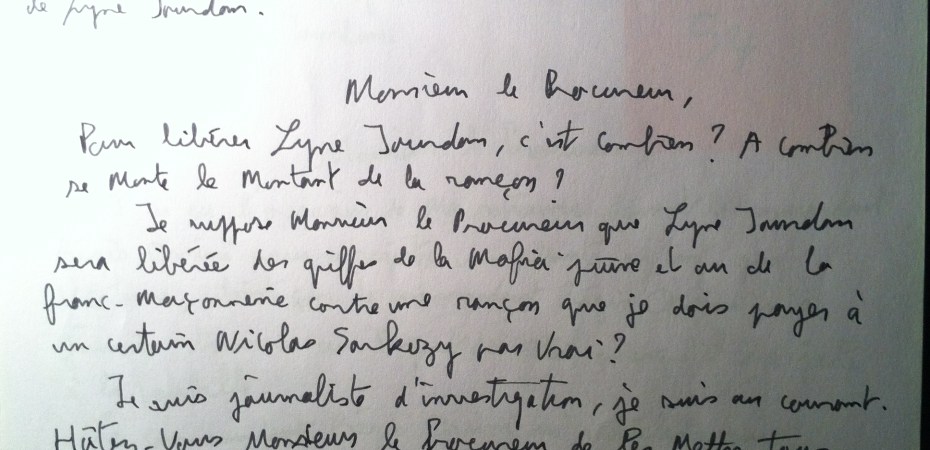 de Lyne Jourdan.
Monsieur le Procureur,
Pour libérer Lyne Jourdan, c'est combien ? A combien
se monte le montant de la rançon ?
Je suppose Monsieur le Procureur que Lyne Jourdan
sera libérée des griffes de la Mafia juive et ou de la
franc-maçonnerie contre une rançon que je dois payer à
un certain Nicolas Sarkozy pas vrai ?
Je suis journaliste d'investigation, je suis au courant.
Hâtez-vous Monsieur le Procureur de les mettre tous